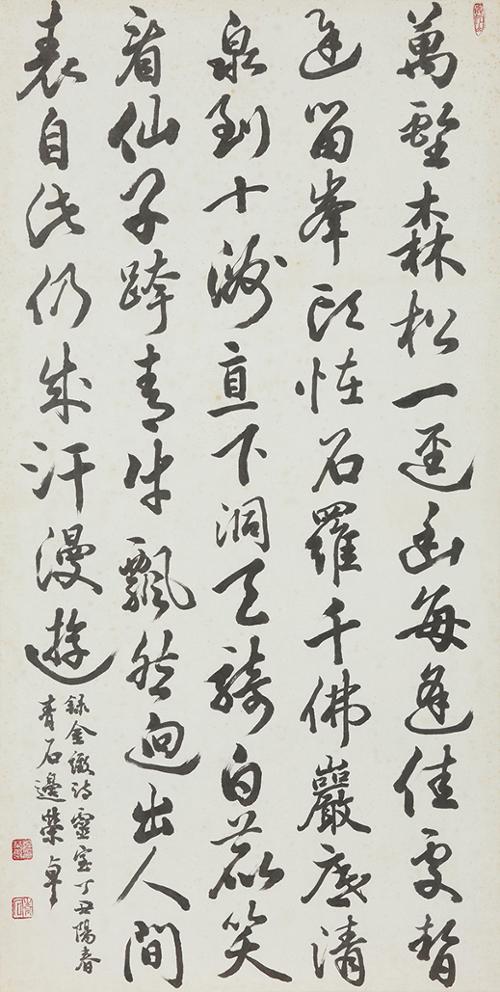 萬壑森松一逕幽每逢佳處暫
延留峯頭怪石羅千佛巖底清
泉到十洲直下洞天騎白鹿笑
看仙子跨青牛飄然迥出人間
表自此仍成汗漫遊
錄金緻詩丁丑陽春
青石邊榮卓